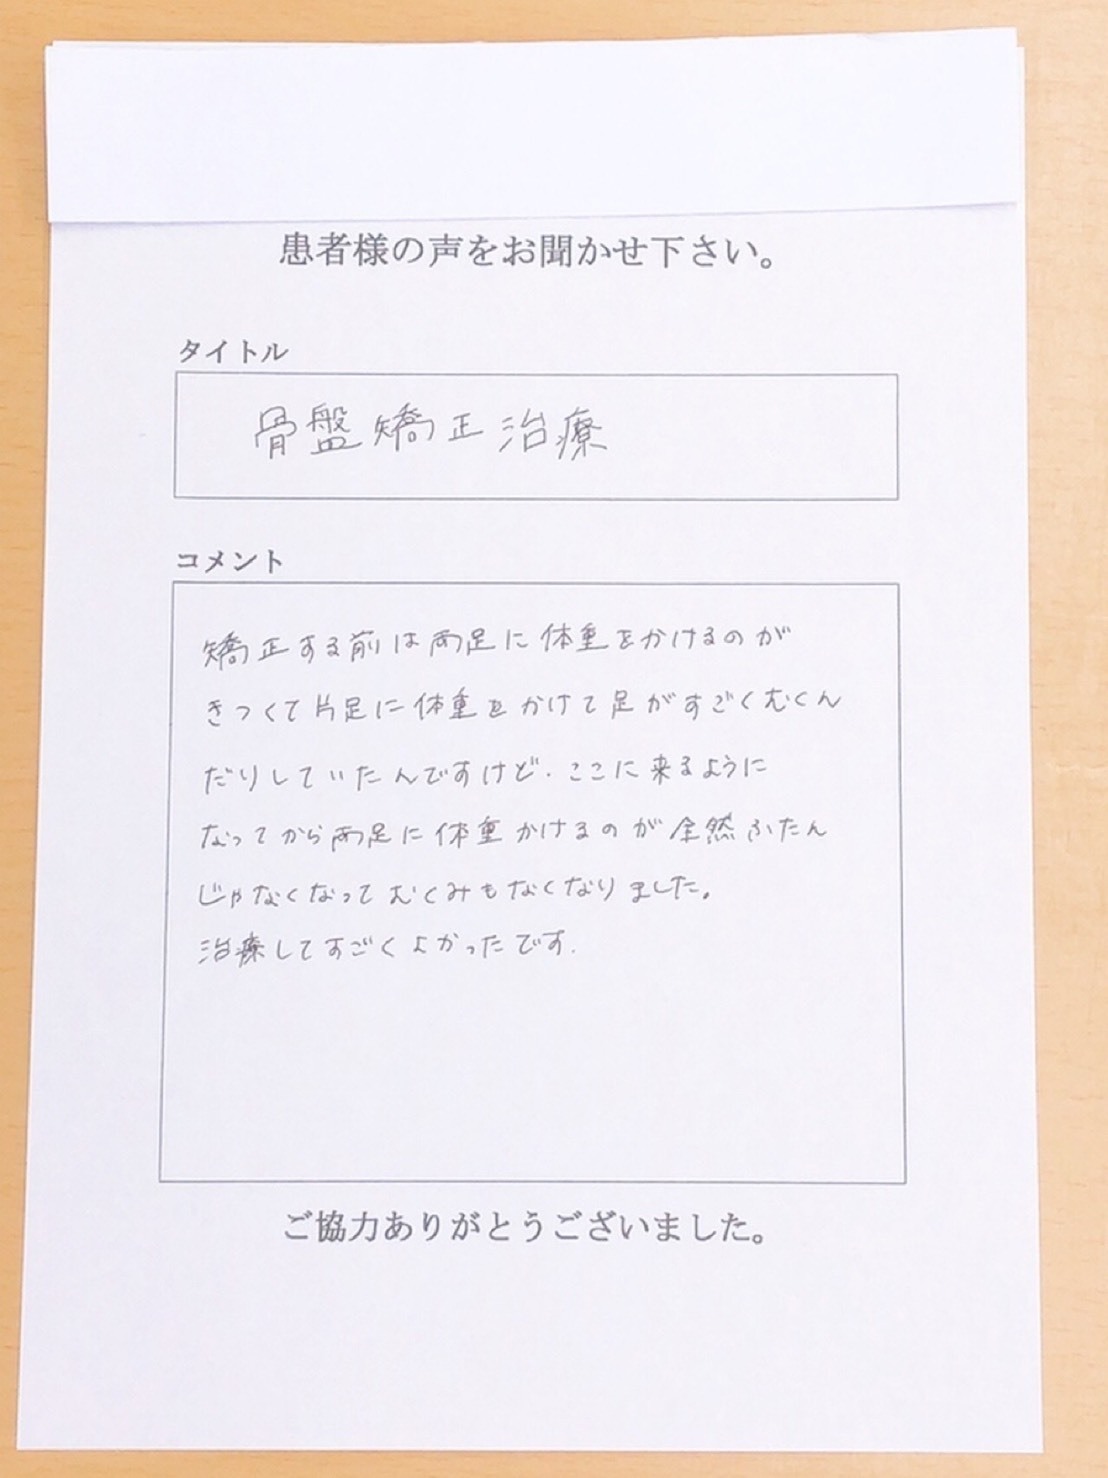 患者様の声をお聞かせ下さい。
タイトル
骨盤矯正治療
コメント
矯正する前は両足に体重をかけるのが
きつくて片足に体重をかけて足がすごくむくん
だりしていたんですけど、ここに来るように
なってから両足に体重かけるのが全然ふたん
じゃなくなってむくみもなくなりました。
治療してすごくよかったです.
ご協力ありがとうございました。